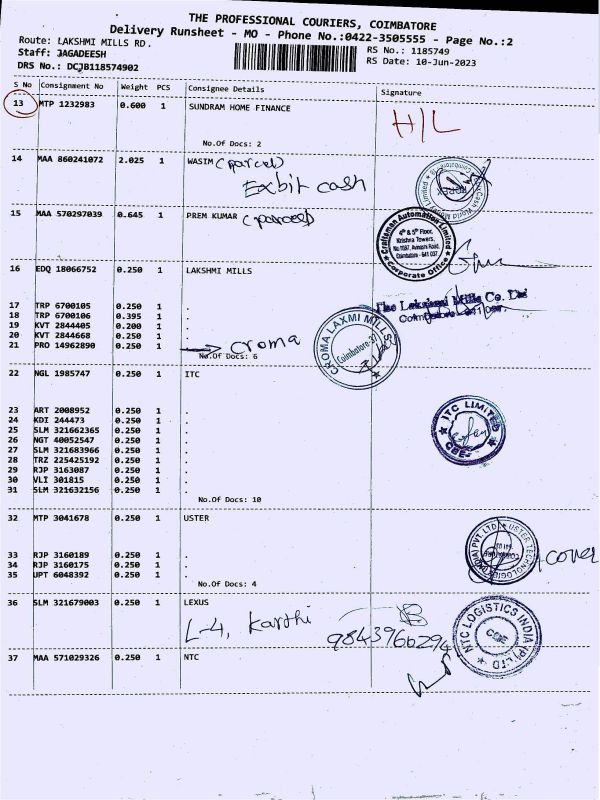 THE PROFESSIONAL COURIERS, COIMBATORE
Delivery Runsheet - MO - Phone No.:0422-3505555 - Page No.:2
Route: LAKSHMI MILLS RD.
RS No.: 1185749
Staff: JAGADEESH
RS Date: 10-Jun-2023
DRS No.: DCJB118574902
S No Consignment No Weight PCS Consignee Details Signature
13 MTP 1232983 0.600 1 SUNDRAM HOME FINANCE
H/L
No.Of Docs: 2
14 MAA 860241072 2.025 1 WASIM (parcel)
Exbit cash
15 MAA 570297039 0.645 1 PREM KUMAR (parcel)
Craftsman Automation Limited
4th & 5th Floor,
Krishna Towers,
Coimbatore - 641 037.
Corporate Office
16 EDQ 18066752 0.250 1 LAKSHMI MILLS
The Lakshmi Mills Co. Ltd
17 TRP 6700105 0.250 1 .
18 TRP 6700106 0.395 1 .
19 KVT 2844405 0.200 1 .
20 KVT 2844668 0.250 1 .
21 PRO 14962890 0.250 1 .
croma
No.Of Docs: 6
CROMA LAXMI MILLS
Coimbatore-37
22 NGL 1985747 0.250 1 ITC
23 ART 2008952 0.250 1 .
24 KDI 244473 0.250 1 .
25 SLM 321662365 0.250 1 .
26 NGT 40052547 0.250 1 .
27 SLM 321683966 0.250 1 .
28 TRZ 225425192 0.250 1 .
29 RJP 3163087 0.250 1 .
30 VLI 301815 0.250 1 .
31 SLM 321632156 0.250 1 .
No.Of Docs: 10
ITC LIMITED
CBE
32 MTP 3041678 0.250 1 USTER
33 RJP 3160189 0.250 1 .
34 RJP 3160175 0.250 1 .
35 UPT 6048392 0.250 1 .
No.Of Docs: 4
USTER TECHNOLOGIES (INDIA) PVT. LTD
cover
36 SLM 321679003 0.250 1 LEXUS
L-4, Karthi
9843966294
37 MAA 571029326 0.250 1 NTC
NTC LOGISTICS INDIA (P) LTD
CBE